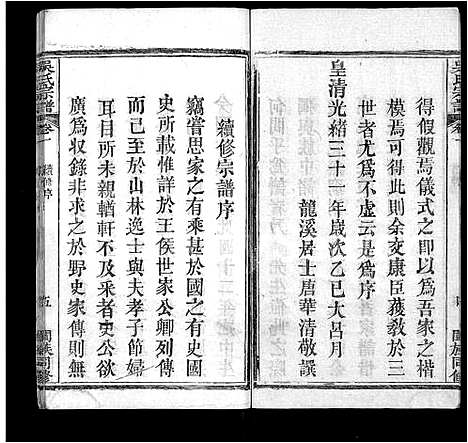 得假觀焉儀式之即以為吾家之楷
模焉可已則如余友康臣莪敎於三
世者尤為不虛云是為序
皇清光緒三十一年歲次乙巳大呂月
龍溪居士唐華清敬譔
吳氏宗譜
卷一
續修序
五
闔族同修
續修宗譜序
竊嘗思家之有譜甚於國之有史而
史所載惟詳於王侯世家公卿列傳
而已至於山林逸士與夫孝子節婦
耳目所未親輶軒不及采者史公欲
廣為收錄非求之於野史家傳則無